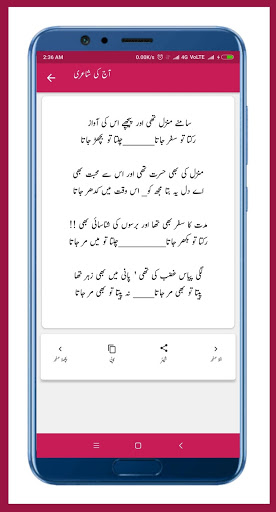 2:36 AM 0.00K/s 4G VoLTE
آج کی شاعری
سامنے منزل تھی اور پیچھے اس کی آواز
رکتا تو سفر جاتا______چلتا تو بچھڑ جاتا
منزل کی بھی حسرت تھی اور اس سے محبت بھی
اے دل یہ بتا مجھ کو_ اس وقت میں کدھر جاتا
مدت کا سفر بھی تھا اور برسوں کی شناسائی بھی !!
رکتا تو بکھر جاتا______چلتا تو میں مر جاتا
لگی پیاس غضب کی تھی ' پانی میں بھی زہر تھا
پیتا تو بھی مر جاتا____ نہ پیتا تو بھی مر جاتا
اگلا صفحہ
شیئر
کاپی
پچھلا صفحہ